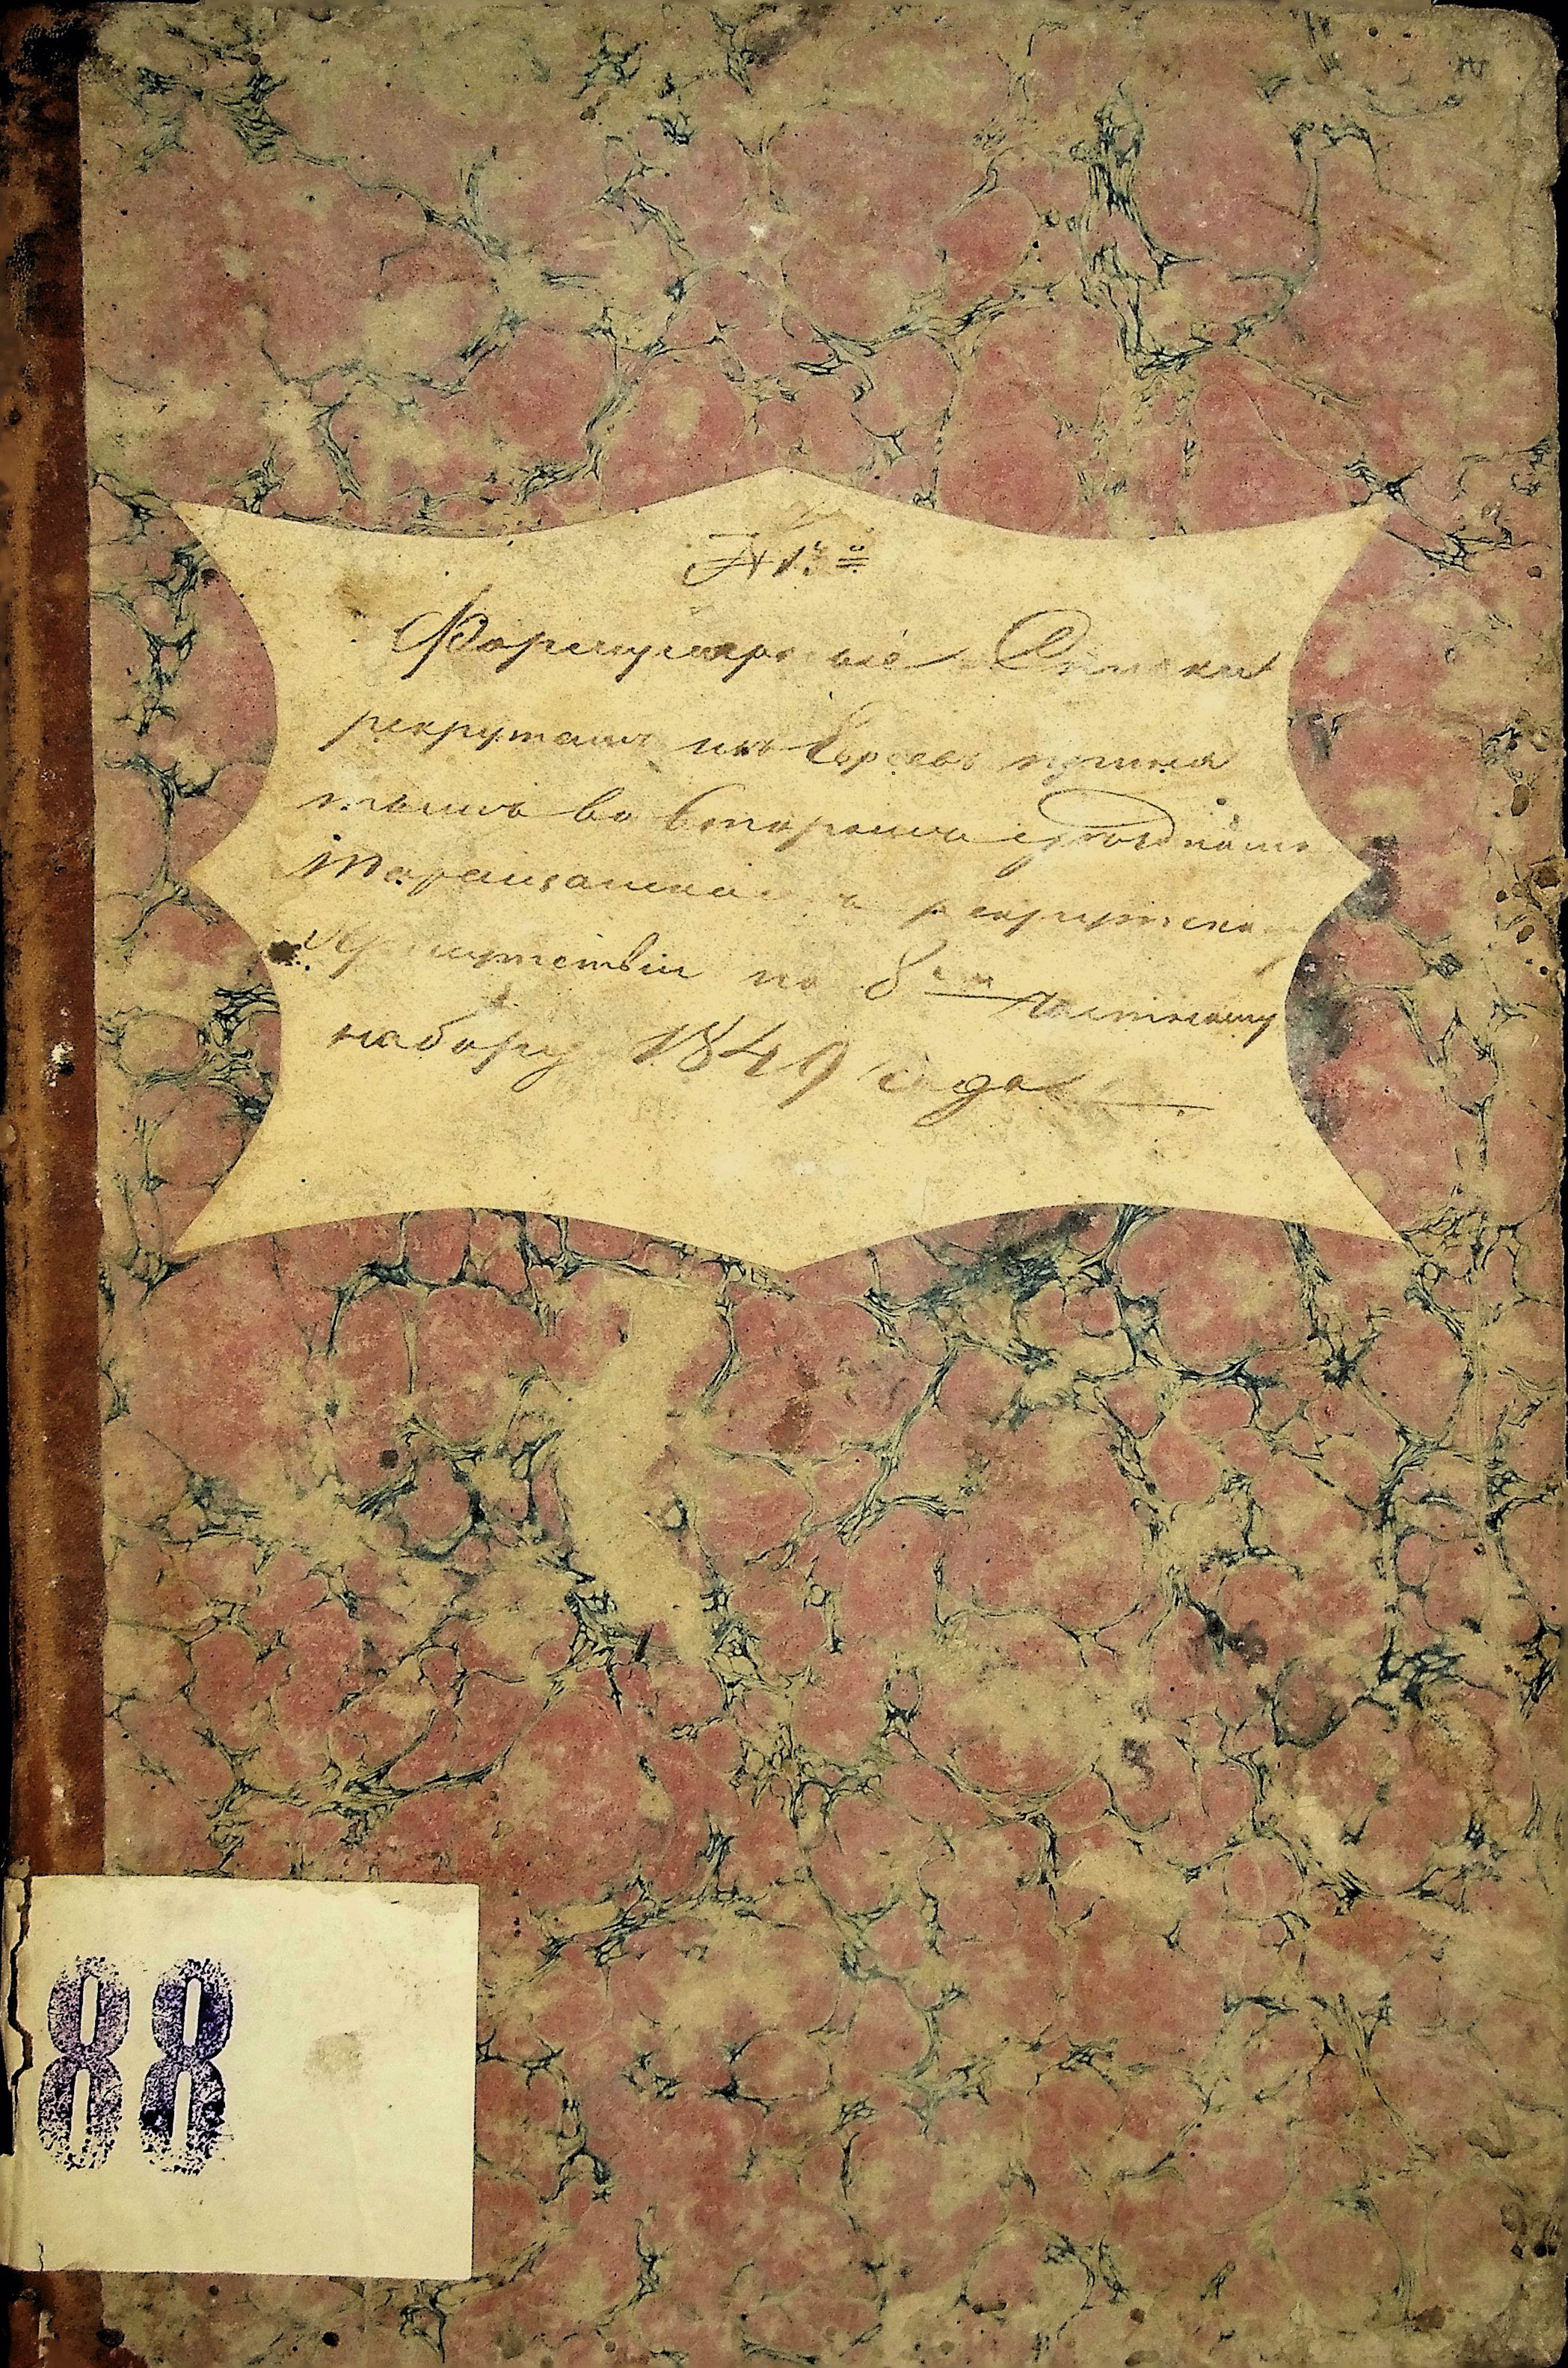 № 13
Формулярные Списки
рекрутамъ изъ Евреевъ приня
тымъ во Второмъ
Таращанскомъ рекрутском
Присутствіи по 8му Частному
набору 1849 года
88